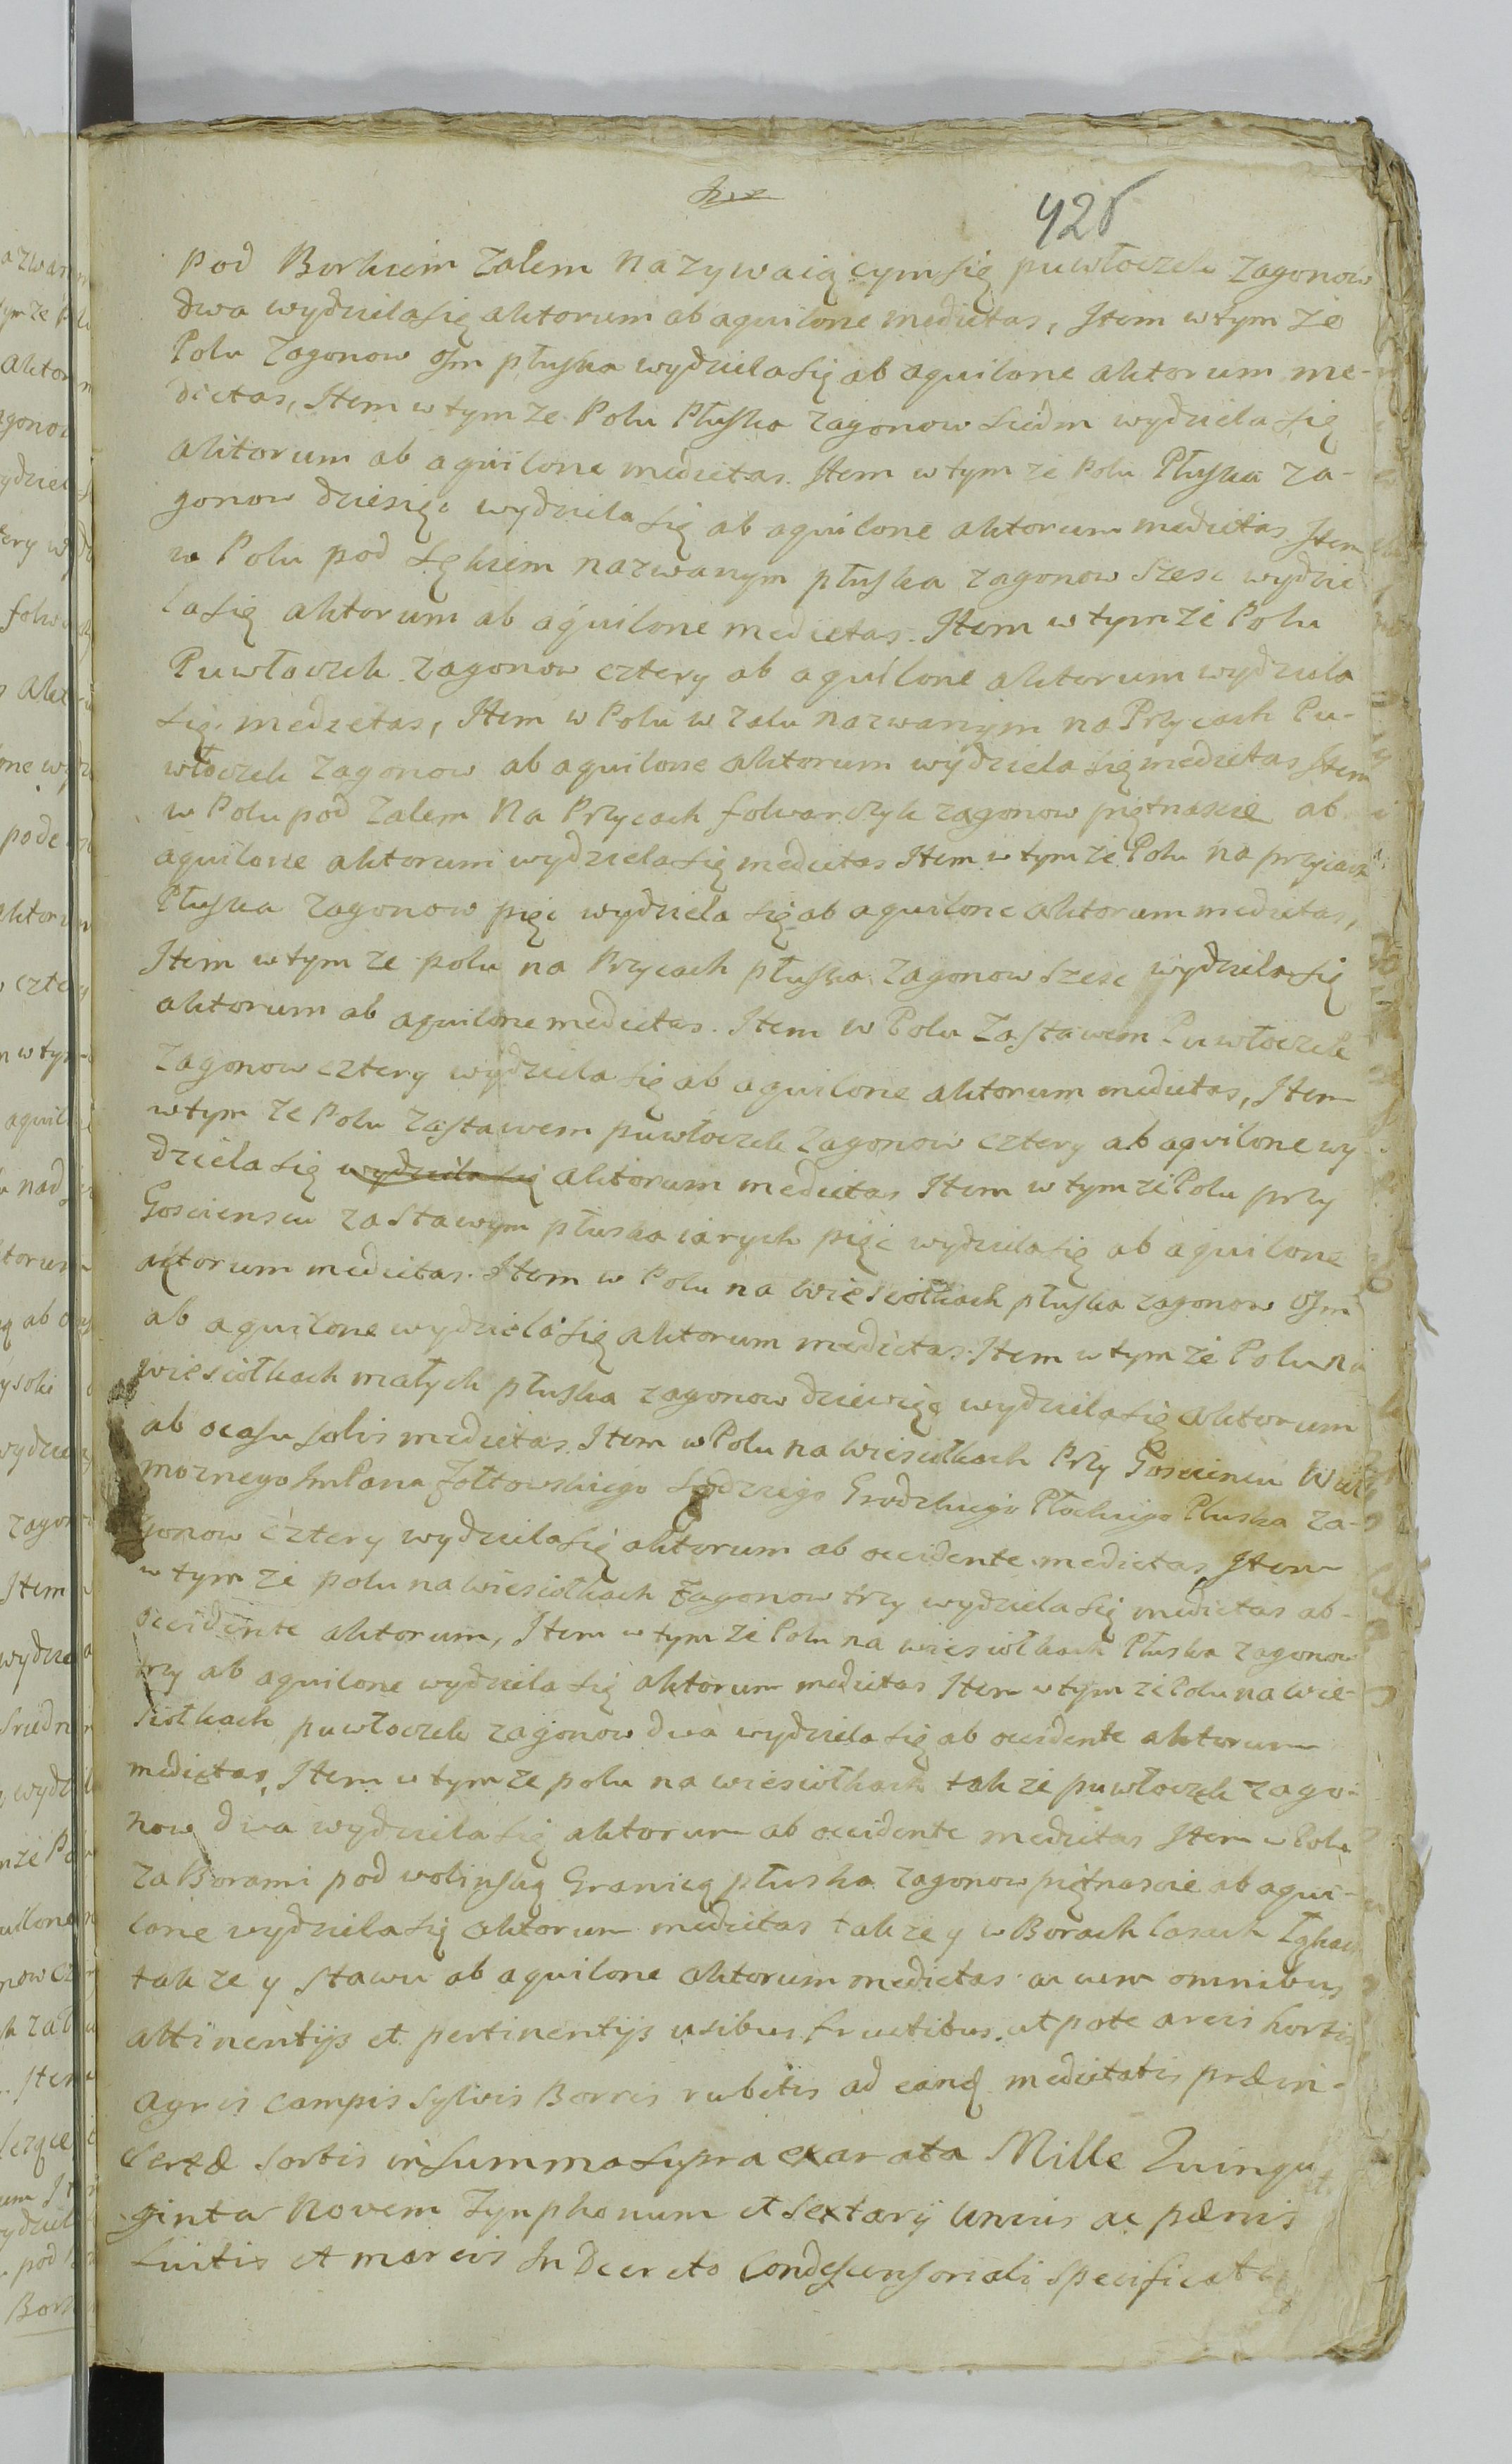 428
pod Borkiem Zalem nazywaiącym się puwłoczek zagonow
dwa wydziela się aktorum ab aquilone medietas, Item w tym ze
Polu zagonow osm płuska wydziela się ab aquilone aktorum me-
dietas, Item w tym ze Polu Płuska zagonow siedm wydziela się
aktorum ab aquilone medietas. Item w tym ze Polu Płuska za-
gonow dziesięc wydziela się ab aquilone aktorum medietas Item
w Polu pod Sękiem nazwanym płuska zagonow szesc wydzie
la się aktorum ab aquilone medietas. Item w tym ze Polu
Puwłoczek zagonow cztery ab aquilone aktorum wydziela
się medietas, Item w Polu w Zalu nazwanym na Przycach Pu-
włoczek zagonow ab aquilone aktorum wydziela się medietas Item
w Polu pod Zalem Na Przycach folwarczyk zagonow piętnascie ab
aquilone aktorum wydziela się medietas Item w tym ze Polu na przycach
Płuska zagonow pięc wydziela się ab aquilone aktorum medietas,
Item w tym ze polu na Przycach płuska zagonow szesc wydziela się
aktorum ab aquilone medietas. Item w Polu Zastawem Puwłoczek
zagonow cztery wydziela się ab aquilone aktorum medietas, Item
w tym ze Polu Zastawem puwłoczek zagonow cztery ab aquilone wy
dziela się wydziela się aktorum medietas Item w tym ze Polu przy
Goscienscu zastawym płuska iarych pięc wydziela się ab aquilone
aktorum medietas. Item w Polu na wiesiołkach płuska zagonow osm
ab aquilone wydziela się aktorum medietas. Item w tym ze Polu na
wiesiołkach małych płuska zagonow dziewięc wydziela się aktorum
ab ocasu solis medietas. Item w Polu na wiesiołkach Przy Goscincu Wiel
moznego ImPana Zołtowskiego Sędziego Grodzkiego Płockiego Płuska za-
gonow cztery wydziela się aktorum ab occidente medietas, Item
w tym ze polu na wiesiołkach zagonow trzy wydziela się medietas ab-
occidente aktorum, Item w tym ze Polu na wiesiołkach Płuska zagonow
trzy ab aquilone wydziela się aktorum medietas Item w tym ze Polu na wie-
siołkach puwłoczek zagonow dwa wydziela się ab occidente aktorum
medietas, Item w tym ze polu na wiesiołkach tak ze puwłoczek zago-
now dwa wydziela się aktorum ab occidente medietas Item w Polu
za Borami pod wolinską Granicą płuska zagonow piętnascie ab aqui-
lone wydziela się aktorum medietas tak ze y w Borach lasach Łąkach
tak ze y stawu ab aquilone aktorum medietas ac cum omnibus
attinentijs et pertinentijs usibus fructibus utpote areis hortis
agris campis sylvis Borris rubetis ad eandq medietatis prætin-
sertæ sortis in summa supra exarata Mille Quingua
ginta Novem Tynphonum et sextarij unius ac pænis
luitis et marcis In Decreto Condescensoriali specificat